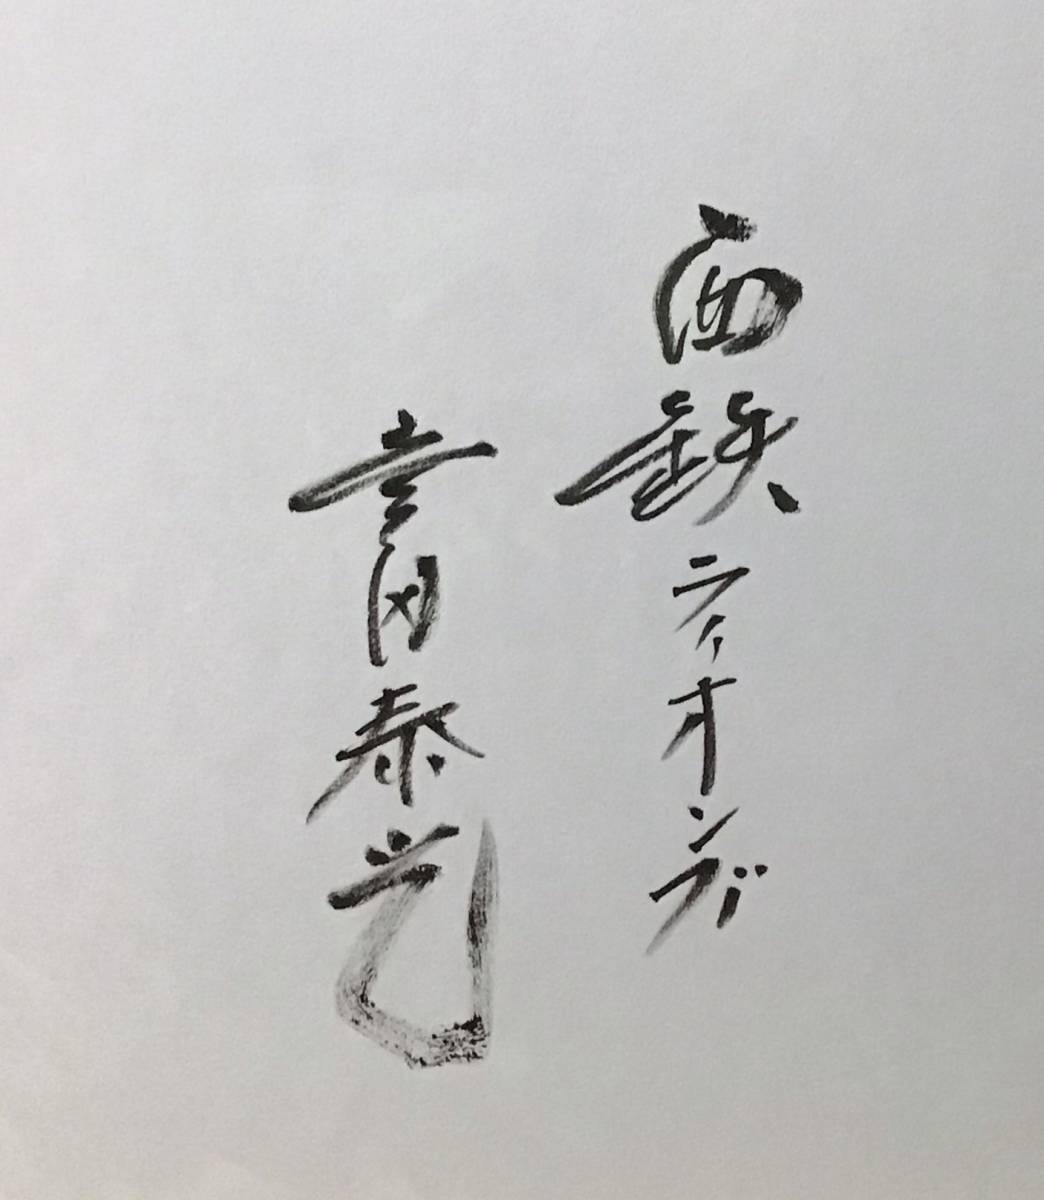 西鉄ライオンズ
豊田泰光